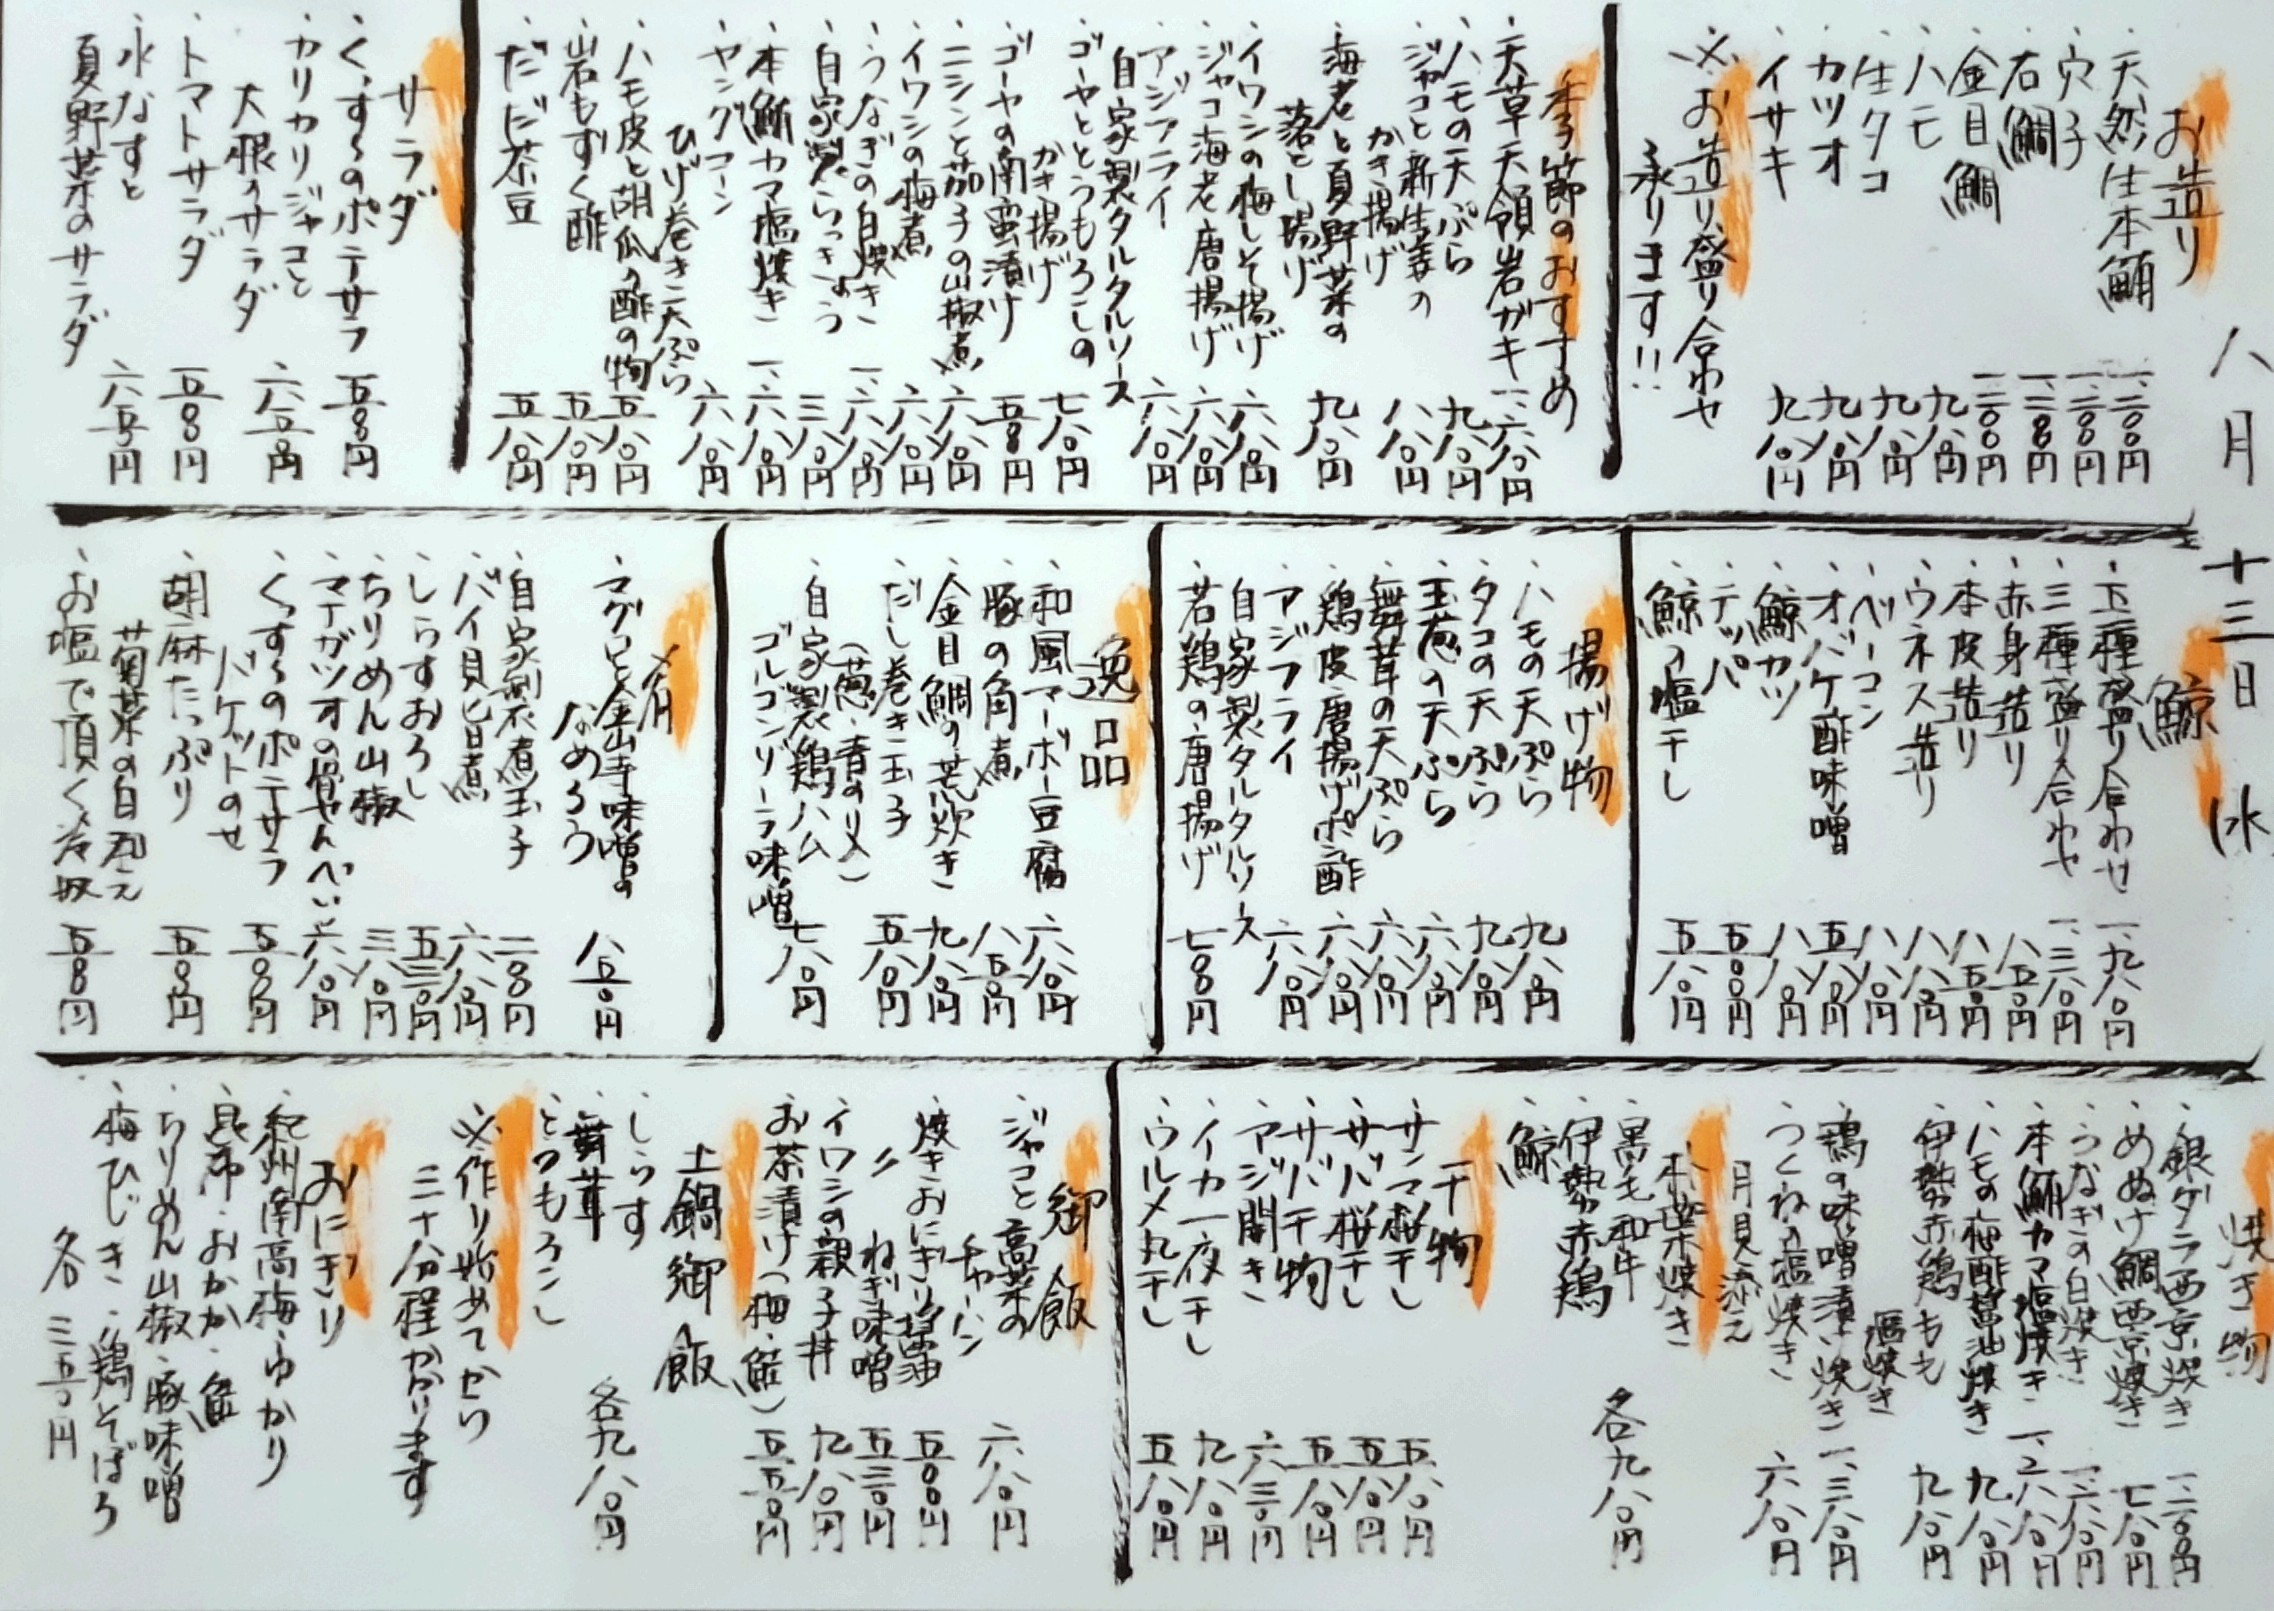 八月十三日(水)
お造り
、天然生本鮪 一、二〇〇円
、穴子 一、二〇〇円
、石鯛 一、二〇〇円
、金目鯛 一、二〇〇円
、ハモ 九八〇円
、生タコ 九八〇円
、カツオ 九八〇円
、イサキ 九八〇円
※お造り盛り合わせ
承ります!!
季節のおすすめ
、天草天領岩ガキ 一、六八〇円
、ハモの天ぷら 九八〇円
、ジャコと新生姜の
かき揚げ 八八〇円
、海老と夏野菜の
落とし揚げ 九八〇円
、イワシの梅しそ揚げ 六八〇円
、ジャコ海老唐揚げ 六八〇円
、アジフライ 六八〇円
自家製タルタルソース
、ゴーヤととうもろこしの
かき揚げ 七八〇円
、ゴーヤの南蛮漬け 五八〇円
、ニシンと茄子の山椒煮 六八〇円
、イワシの梅煮 六八〇円
、うなぎの白焼き 一、六八〇円
、自家製らっきょう 三八〇円
、本鮪カマ塩焼き 一、六八〇円
、ヤングコーン
ひげ巻き天ぷら 六八〇円
、ハモ皮と胡瓜の酢の物 五八〇円
、岩もずく酢 五八〇円
、だだ茶豆 五八〇円
サラダ
、くずきのポテサラ 五八〇円
、カリカリジャコと
大根のサラダ 六五〇円
、トマトサラダ 五八〇円
、水なすと
夏野菜のサラダ 六五〇円
鯨
、五種盛り合わせ 一、九八〇円
、三種盛り合わせ 一、三八〇円
、赤身造り 八五〇円
、本皮造り 八五〇円
、ウネス造り 八八〇円
、ベーコン 八八〇円
、オバケ酢味噌 五八〇円
、鯨カツ 八八〇円
、テッパ 五八〇円
、鯨の塩干し 五八〇円
揚げ物
、ハモの天ぷら 九八〇円
、タコの天ぷら 九八〇円
、玉葱の天ぷら 六八〇円
、舞茸の天ぷら 六八〇円
、鶏皮唐揚げポン酢 六八〇円
、アジフライ 六八〇円
自家製タルタルソース
、若鶏の唐揚げ 七八〇円
逸品
、和風マーボー豆腐 六八〇円
、豚の角煮 八五〇円
、金目鯛の荒炊き 九八〇円
、だし巻き玉子
(葱・青のり) 五八〇円
、自家製鶏ハム
ゴルゴンゾーラ味噌 七八〇円
肴
、マグロと金山寺味噌の
なめろう 八五〇円
、自家製煮玉子 二〇〇円
、バイ貝旨煮 六八〇円
、しらすおろし 五三〇円
、ちりめん山椒 三八〇円
、マナガツオの骨せんべい 六八〇円
、くずきのポテサラ
バケットのせ 五八〇円
、胡麻たっぷり
菊菜の白和え 五八〇円
、お塩で頂く冷奴 五八〇円
焼き物
、銀ダラ西京焼き 一、二〇〇円
、めぬけ鯛西京焼き 七八〇円
、うなぎの白焼き 一、六八〇円
、本鮪カマ塩焼き 一、六八〇円
、ハモの梅酢醤油焼き 九八〇円
、伊勢赤鶏もも
塩焼き 九八〇円
、鶏の味噌漬け焼き 一、三八〇円
、つくねの塩焼き
月見添え 六八〇円
朴葉焼き
、黒毛和牛
、伊勢赤鶏
、鯨
各九八〇円
干物
、サンマ桜干し 五八〇円
、サバ桜干し 五八〇円
、サバ干物 五八〇円
、アジ開き 六三〇円
、イカ一夜干し 九八〇円
、ウルメ丸干し 五八〇円
御飯
、ジャコと高菜の
チャーハン 六八〇円
、焼きおにぎり醤油 五〇〇円
、〃 ねぎ味噌 五三〇円
、イワシの親子丼 九八〇円
、お茶漬け(梅・鮭) 五五〇円
土鍋御飯
、しらす
、舞茸
、とうもろこし
各九八〇円
※作り始めてから
三十分程かかります
おにぎり
、紀州南高梅・ゆかり
、昆布・おかか・鮭
、ちりめん山椒・豚味噌
、梅ひじき・鶏そぼろ
各三五〇円